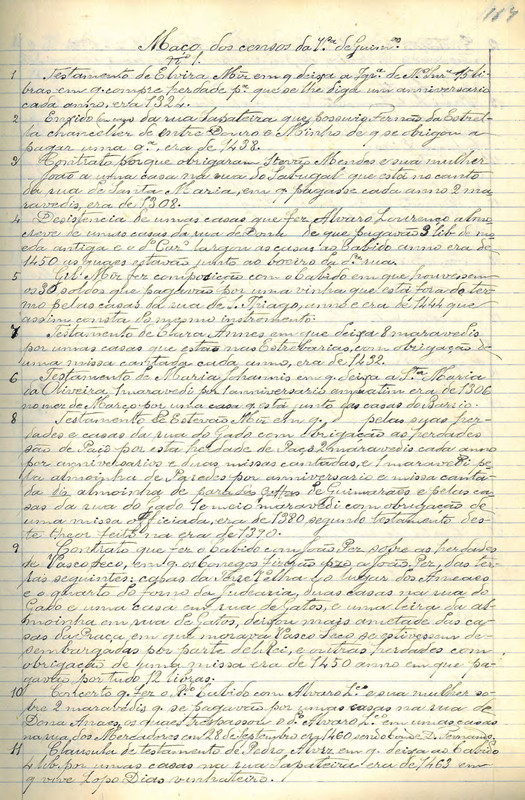 Maço, dos censos da V.ª de Guim.es
n.º 1.
1 Testamento de Elvira Miz em q deixa a Igr.ª de N.ª Snr.ª 15 li-
bras em q compre herdade p.ª que se lhe diga um anniversario
cada anno, era 1324.
2 da rua Sapateira que possuiu Fernão da Estrel-
la chanceller de entre Douro e Minho de q se obrigou a
pagar uma q.ª, era de 1438.
3 Contrato porque obrigaram Stevão Mendes e sua mulher
João a uma casa na rua do Sabugal que está no canto
da rua de Santa Maria, em q pagasse cada anno 2 ma-
ravedis, era de 1308.
4 Desistencia de umas casas que fez Alvaro Lourenço almo-
creve de umas casas da rua de Dona de que pagavão 3 lib de mo-
eda antiga e o d.º largou as casas ao Cabido anno era de
1450 as quaes estavão junto ao boeiro da d.ª rua.
5 Gil Miz fez composição com o Cabido em que houvessem
os 30 soldos que pagavão por uma vinha que está fora do ter-
mo pelas casas da rua de S. Thiago, anno e era de 1444 que
assim consta do mesmo instromento.
7 Testamento de Clara Annes em que deixa 8 maravedis
por umas casas que estão nas Estrebarias, com obrigação de
uma missa cantada cada anno, era de 1432.
6 Testamento de Maria Johannis em q deixa a S.ta Maria
da Oliveira, 1 maravedi por 1 anniversario era de 1306
no mez de Março por uma casa q está junto das casas do
8 Testamento de Estevão Miz em q, pelas suas her-
dades e casas da rua do Gado com obrigação as herdades
são de Paço por esta herdade de Paço 2 maravedis cada anno
por anniversarios e duas missas cantadas, e 1 maravedi pe-
la almoinha de Paredes por anniversario e missa canta-
da diz almoinha de paredes de Guimarães e pelas ca-
sas da rua do gado 1 e meio maravedi com obrigação de
uma missa officiada, era de 1380 segundo testamento des-
te theor feito na era de 1390.
9 Contrato que fez o Cabido com João Pez sobre as herdades
de Vasco Seco, em q os Conegos a João Pez, das her-
seguintes: casas da lugar dos Ameaes
e o quarto do forno da Judearia, duas casas na rua do
Gado e uma casa em rua de Gatos, e uma leira da al-
moinha em rua de Gatos, deixou mais ametade das ca-
sas da Praça, em que morava Vasco Seco se estivessem de-
sembargadas por parte del Rei, e outras herdades com
obrigação de uma missa era de 1450 anno em que pa-
gavão por tudo 12 livras.
10 Concerto q fez o d.º Cabido com Alvaro L.ço e sua mulher so-
bre 2 maravedis q se pagavão por umas casas na rua de
Dona Anaes, os quaes trespassou o d.º Alvaro L.ço em umas casas
na rua dos Mercadores em 28 de Setembro era 1460
11 Clausula de testamento de Pedro Alviz em q deixa ao Cabido
4 lib. por umas casas na rua Sapateira era de 1463 em
q vive Lopo Dias vinhateiro.